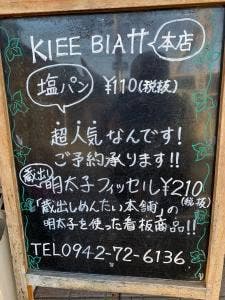 KLEE BLATT 本店
塩パン ¥110(税抜)
超人気なんです!
ご予約承ります!!
蔵出し 明太子フィッセル ¥210(税抜)
「蔵出しめんたい本舗」の
明太子を使った看板商品!!
TEL0942-72-6136